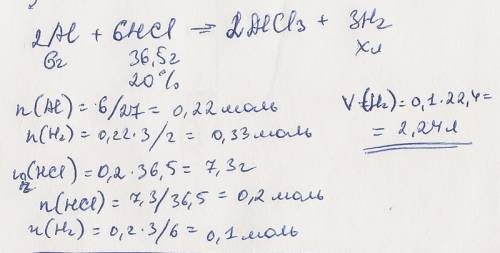 2Al + 6HCl => 2AlCl3 + 3H2
6г 36,5г xл
20%
n(Al) = 6/27 = 0,22 моль
n(H2) = 0,22·3/2 = 0,33 моль
m(HCl) = 0,2·36,5 = 7,3г
n(HCl) = 7,3/36,5 = 0,2 моль
n(H2) = 0,2·3/6 = 0,1 моль
V(H2) = 0,1·22,4 =
= 2,24л